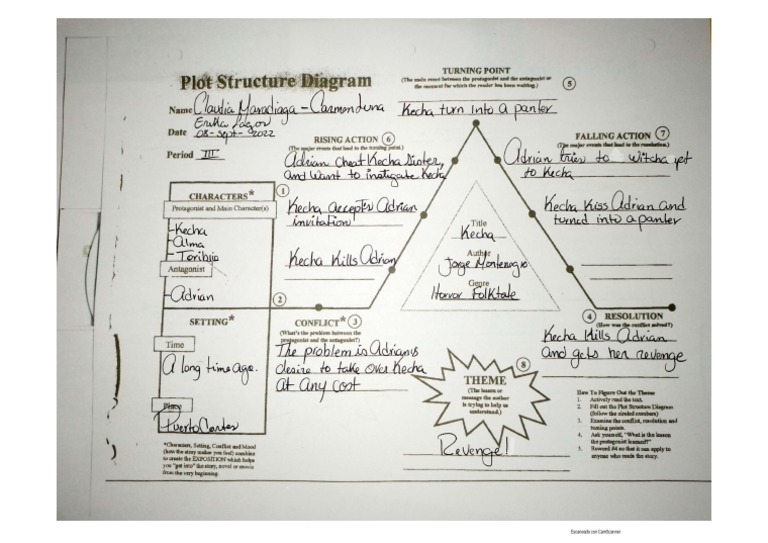 Plot Structure Diagram
Name Claudia Maradiaga - Carmen Luna
Erika Lagos
Date 08-sept-2022
Period III
TURNING POINT
(The main event between the protagonist and the antagonist or
the moment for which the reader has been waiting.)
5
Kecha turn into a panter
RISING ACTION 6
(The major events that lead to the turning point.)
Adrian cheat Kecha Sister,
and want to instigate Kecha
Kecha accepts Adrian
invitation
Kecha Kills Adrian
FALLING ACTION 7
(The major events that lead to the resolution.)
Adrian tries to witcha
to Kecha
Kecha Kiss Adrian and
turned into a panter
CHARACTERS* 1
Protagonist and Main Character(s)
-Kecha
-Alma
-Toribia
Antagonist
-Adrian
Title
Kecha
Author
Jorge Montenegro
Genre
Horror Folktale
SETTING* 2
Time
A long time ago.
Place
Puerto Cortes
CONFLICT* 3
(What's the problem between the
protagonist and the antagonist?)
The problem is Adrian's
desire to take over Kecha
at any cost
4 RESOLUTION
(How was the conflict solved?)
Kecha Kills Adrian
and gets her revenge
8
THEME
(The lesson or
message the author
is trying to help us
understand.)
Revenge!
How To Figure Out the Theme
1. Actively read the text.
2. Fill out the Plot Structure Diagram
(follow the circled numbers)
3. Examine the conflict, resolution and
turning points.
4. Ask yourself, "What is the lesson
the protagonist learned?"
5. Reword #4 so that it can apply to
anyone who reads the story.
*Characters, Setting, Conflict and Mood
(how the story makes you feel) combine
to create the EXPOSITION which helps
you "get into" the story, novel or movie
from the very beginning.
Escaneado con CamScanner